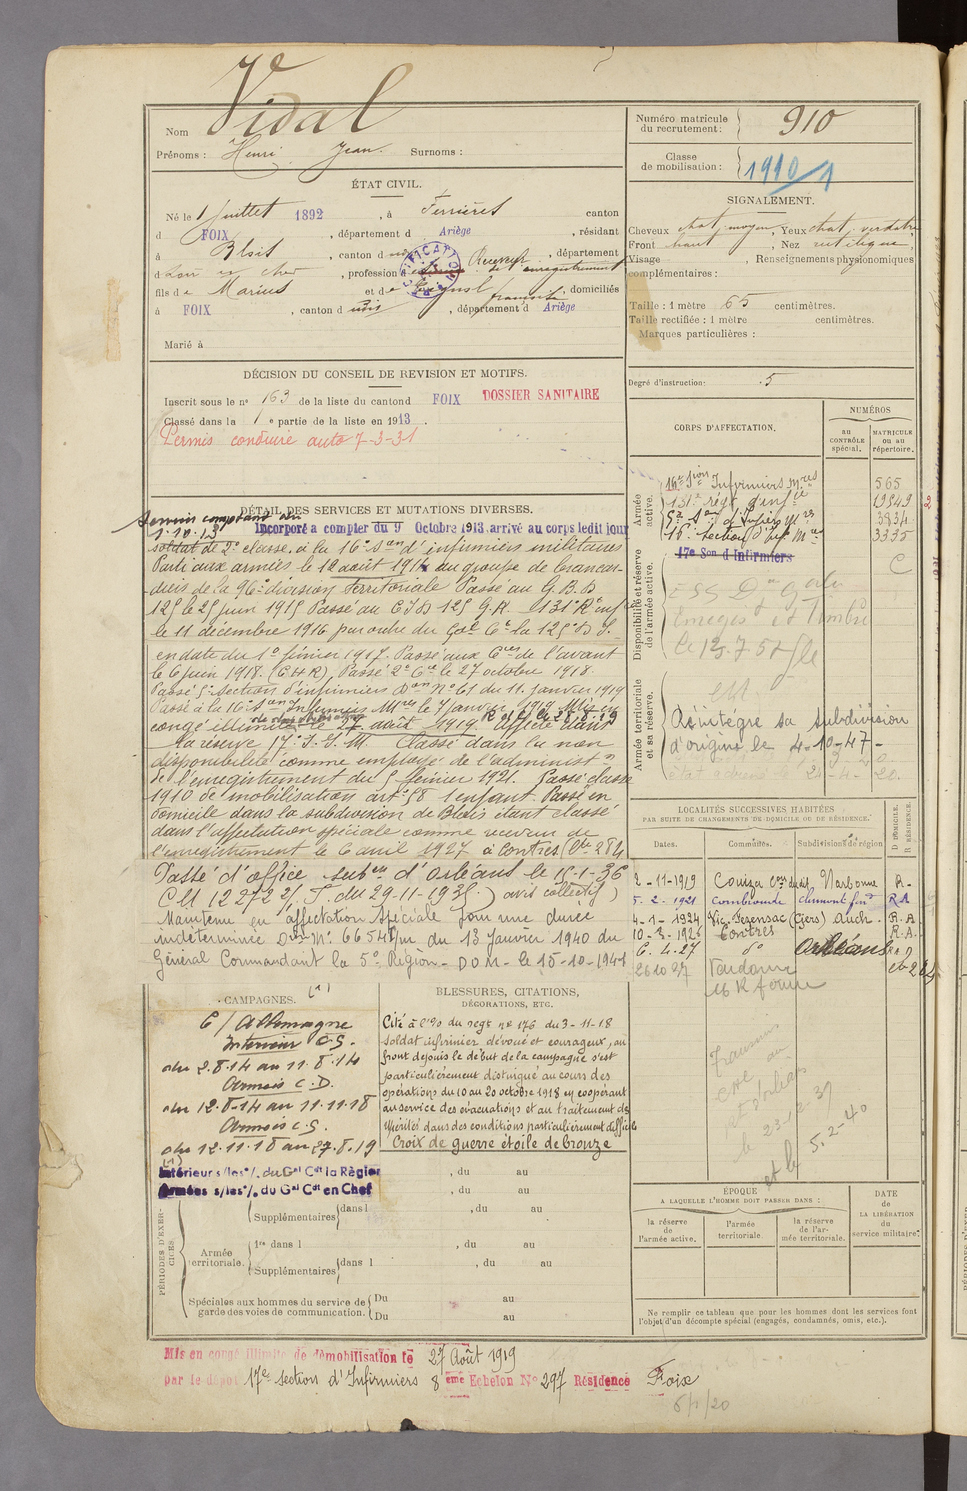 Nom Vidal
Prénoms : Henri Jean. Surnoms :
Numéro matricule du recrutement : 910
Classe de mobilisation : 1910/1
ÉTAT CIVIL.
Né le 1 Juillet 1892, à Ferrières canton
d FOIX, département d Ariège, résidant
à Blois, canton d , département
d Loir et Cher, profession d Receveur de l'enregistrement
fils de Marius et de françoise, domiciliés
à FOIX, canton d udis, département d Ariège
Marié à
SIGNALEMENT.
Cheveux chat. moyen, Yeux chat. verdatre
Front haut, Nez rectiligne,
Visage , Renseignements physionomiques
complémentaires :
Taille : 1 mètre 65 centimètres.
Taille rectifiée : 1 mètre centimètres.
Marques particulières :
Degré d'instruction : 5
DÉCISION DU CONSEIL DE REVISION ET MOTIFS.
Inscrit sous le nº 163 de la liste du canton d FOIX DOSSIER SANITAIRE
Classé dans la 1e partie de la liste en 1913.
Permis conduire auto 7-3-31
CORPS D'AFFECTATION.
NUMÉROS
au CONTRÔLE spécial.
MATRICULE ou au répertoire.
Armée active.
16e Sion Infirmiers mres 565
131e régt d'infie 19543
5e Son d'Infiers Mres 3834
16e Section d'Inf. Mres 3335
Disponibilité et réserve de l'armée active.
17e Son d'Infirmiers
C
Armée territoriale et sa réserve.
Réintégré sa subdivision
d'origine le 4-10-47-
DÉTAIL DES SERVICES ET MUTATIONS DIVERSES.
Service comptant du
1.10.13 Incorporé à compter du 9 Octobre 1913. arrivé au corps ledit jour
soldat de 2e classe. à la 16e Son d'infirmiers militaires
Parti aux armées le 12 août 1914 au groupe de brancar-
diers de la 96e division territoriale Passé au G.B.D
125 le 25 juin 1915 Passé au C.I.D 125 G.R. 131e Rt inf
le 11 décembre 1916 par ordre du Gal Ct la 125e D.I.
en date du 1er février 1917. Passé aux Cies de l'avant
le 6 juin 1918. (C.H.R) Passé 2e Cie le 27 octobre 1918.
Passé 5e Section d'infirmiers Don Nº 61 du 11 Janvier 1919
Passé à la 16e Son Infirmiers Mres le 7 janvier 1919 Mis en
congé illimité le 27 août 1919 affecté dans
la réserve 17e S.I.M Classé dans la non
disponibilité comme employé de l'administon
de l'enregistrement du 5 février 1921. Passé classe
1910 de mobilisation art. 58 1 enfant. Passé en
domicile dans la subdivision de Blois étant classé
dans l'affectation spéciale comme receveur de
l'enregistrement le 6 avril 1927 à Contres (Cbt 284
Passé d'office subon d'Orléans le 15-1-36
C M 12272 2/ du 29-11-1935) avis collectif)
Maintenu en affectation spéciale pour une durée
indéterminée Don Mle 6654 du 13 Janvier 1940 du
Général Commandant la 5e Région - DOM - le 15-10-1941
LOCALITÉS SUCCESSIVES HABITÉES
PAR SUITE DE CHANGEMENTS DE DOMICILE OU DE RÉSIDENCE.
Dates. Communes. Subdivision de région D. DOMICILE. R. RÉSIDENCE.
2-11-1919 Couiza Narbonne R-
5-2-1921 Combronde Clermont fnd R A
4-1-1924 Vic-Fezensac (Gers) Auch. R.A.
10-3-1926 Contres R.A.
6.4-27 do Orléans
26 10 27 Vendome
16 R ferme
Transmis
au
le 23-12-37
et le 5.2-40
CAMPAGNES. (1)
C/ Allemagne
Intérieur C.S.
du 2.8.14 au 11.8.14
Armées C.D.
du 12.8-14 au 11.11.18
Armées C.S.
du 12.11.18 au 27.8.19
(1)
Intérieur s/les o/. du Gal Cdt la Région
Armées s/les o/. du Gal Cdt en Chef
BLESSURES, CITATIONS,
DÉCORATIONS, ETC.
Cité à l'O/ du regt nº 176 du 3-11-18
soldat infirmier dévoué et courageux, au
front depuis le début de la campagne s'est
particulièrement distingué au cours des
opérations du 10 au 20 octobre 1918 en coopérant
au service des évacuations et au traitement des
ypérités dans des conditions particulièrement difficiles
Croix de guerre étoile de bronze
PÉRIODES D'EXERCICES.
, du au
, du au
Supplémentaires dans l , du au
Armée territoriale.
1re dans l , du au
Supplémentaires dans l , du au
Spéciales aux hommes du service de garde des voies de communication.
Du au
Du au
ÉPOQUE
À LAQUELLE L'HOMME DOIT PASSER DANS :
la réserve de l'armée active.
l'armée territoriale
la réserve de l'armée territoriale.
DATE de LA LIBÉRATION du service militaire.
Ne remplir ce tableau que pour les hommes dont les services font
l'objet d'un décompte spécial (engagés, condamnés, omis, etc.).
Mis en congé illimité de démobilisation le 27 Août 1919
par le dépôt 17e section d'Infirmiers 8ème Echelon Nº 297 Résidence Foix
6/1/20